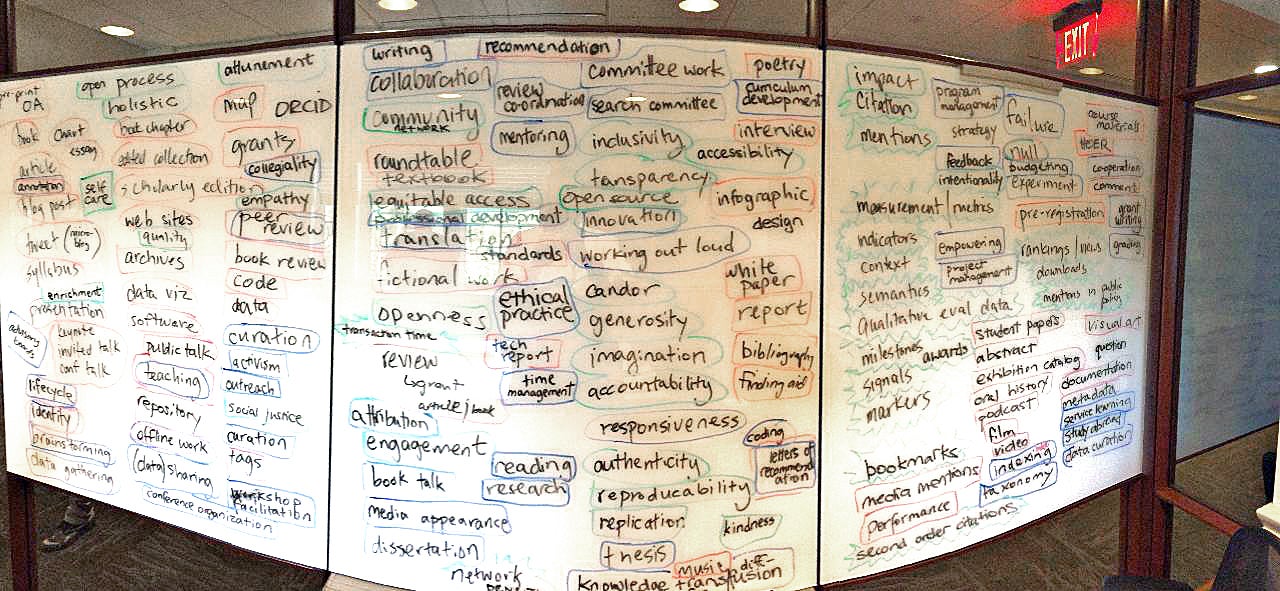 OA
book
chart
essay
article
annotation
self
care
blog post
tweet (micro-
blog)
syllabus
enrichment
presentation
advisory
boards
keynote
invited talk
conf talk
lifecycle
identity
brainstorming
data gathering
open process
holistic
book chapter
edited collection
scholarly edition
web sites
quality
archives
data viz
software
public talk
teaching
repository
offline work
(data) sharing
conference organization
attunement
map
ORCID
grants
collegiality
empathy
peer
review
book review
code
data
curation
activism
outreach
social justice
curation
tags
workshop
facilitation
writing
recommendation
collaboration
community
network
roundtable
textbook
equitable access
professional development
translation
standards
fictional work
openness
transaction time
review
article/book
attribution
engagement
book talk
media appearance
dissertation
network
review
co-ordination
mentoring
ethical
practice
tech
report
time
management
reading
research
committee work
search committee
inclusivity
accessibility
transparency
open source
innovation
working out loud
candor
generosity
imagination
accountability
responsiveness
authenticity
reproducability
replication
kindness
thesis
music
diff-
usion
knowledge transfer
poetry
curriculum
development
interview
infographic
design
white
paper
report
bibliography
finding aid
coding
letters of
recommend
ation
EXIT
impact
citation
mentions
measurement
metrics
indicators
context
semantics
qualitative eval data
milestones
awards
signals
markers
bookmarks
media mentions
performance
second order citations
program
management
strategy
feedback
intentionality
empowering
project
management
student papers
abstract
exhibition catalog
oral history
podcast
film
video
indexing
taxonomy
failure
null
budgeting
experiment
pre-registration
rankings/views
downloads
mentions in public
policy
course
materials
cooperation
comment
grant
writing
grading
visual art
question
documentation
metadata
service learning
study abroad
data curation